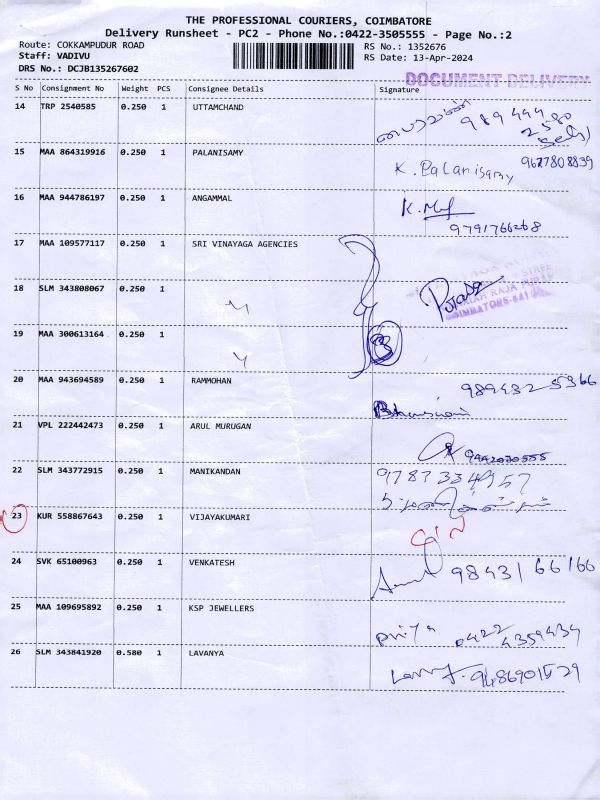 THE PROFESSIONAL COURIERS, COIMBATORE
Delivery Runsheet - PC2 - Phone No.:0422-3505555 - Page No.:2
Route: COKKAMPUDUR ROAD RS No.: 1352676
Staff: VADIVU RS Date: 13-Apr-2024
DRS No.: DCJB135267602
DOCUMENT DELIVERY
S No Consignment No Weight PCS Consignee Details Signature
14 TRP 2540585 0.250 1 UTTAMCHAND
15 MAA 864319916 0.250 1 PALANISAMY K. Palanisamy 9677808839
16 MAA 944786197 0.250 1 ANGAMMAL
9791766268
17 MAA 109577117 0.250 1 SRI VINAYAGA AGENCIES
18 SLM 343808067 0.250 1
19 MAA 300613164 0.250 1
3
20 MAA 943694589 0.250 1 RAMMOHAN 9894325366
21 VPL 222442473 0.250 1 ARUL MURUGAN
22 SLM 343772915 0.250 1 MANIKANDAN
23 KUR 558867643 0.250 1 VIJAYAKUMARI
24 SVK 65100963 0.250 1 VENKATESH 9843166166
25 MAA 109695892 0.250 1 KSP JEWELLERS
Priya 0422 4359439
26 SLM 343841920 0.580 1 LAVANYA
9486901529